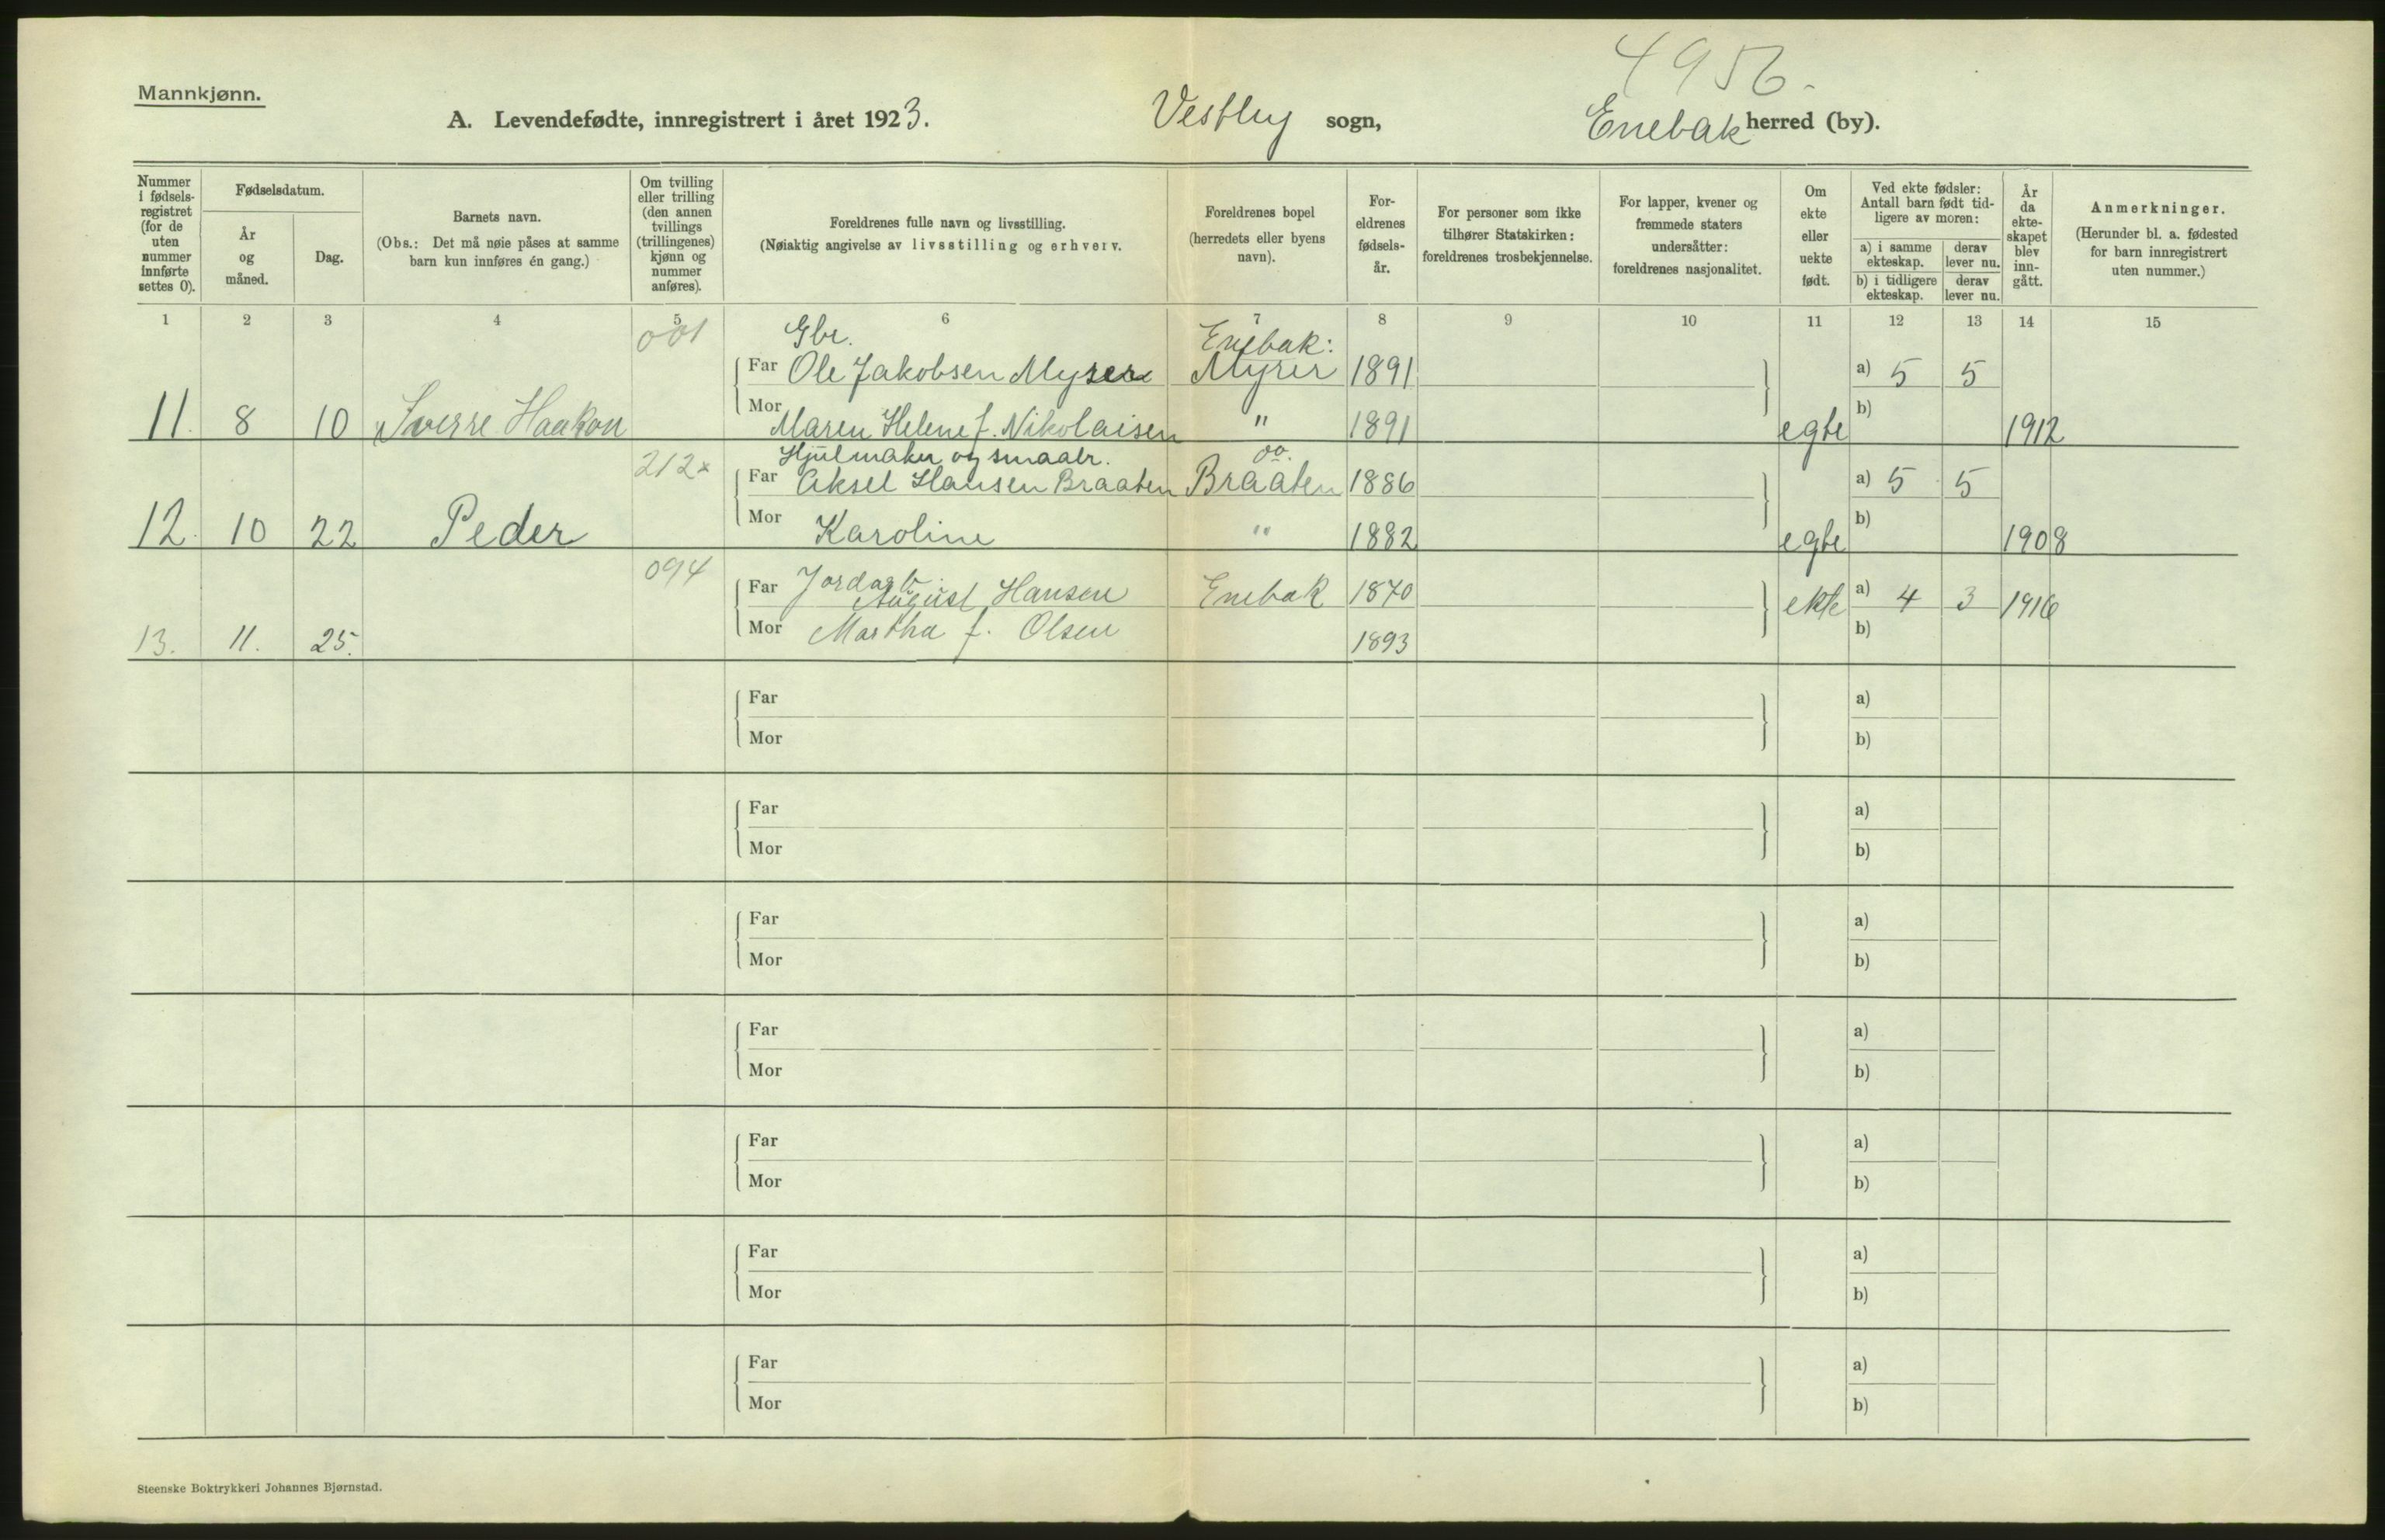 4956.
Mannkjønn.
A. Levendefødte, innregistrert i året 1923. Vestby sogn, Enebak herred (by).
Nummer i fødselsregistret (for de uten nummer innførte settes 0).
Fødselsdatum.
År og måned.
Dag.
Barnets navn.
(Obs.: Det må nøie påses at samme barn kun innføres én gang.)
Om tvilling eller trilling (den annen tvillings (trillingenes) kjønn og nummer anføres).
Foreldrenes fulle navn og livsstilling.
(Nøiaktig angivelse av livsstilling og erhverv.
Foreldrenes bopel (herredets eller byens navn).
Foreldrenes fødselsår.
For personer som ikke tilhører Statskirken: foreldrenes trosbekjennelse.
For lapper, kvener og fremmede staters undersåtter: foreldrenes nasjonalitet.
Om ekte eller uekte født.
Ved ekte fødsler: Antall barn født tidligere av moren:
a) i samme ekteskap. derav lever nu.
b) i tidligere ekteskap. derav lever nu.
År da ekteskapet blev inngått.
Anmerkninger.
(Herunder bl. a. fødested for barn innregistrert uten nummer.)
1 2 3 4 5 6 7 8 9 10 11 12 13 14 15
001 Gbr. Enebak:
Far Ole Jakobsen Myrer Myrer 1891 a) 5 5
11. 8 10 Sverre Haakon Mor Maren Helene f. Nikolaisen " 1891 egte b) 1912
212x Hjulmaker og smaabr. oo.
Far Aksel Hansen Braaten Braaten 1886 a) 5 5
12. 10 22 Peder Mor Karoline " 1882 egte b) 1908
094 Jordarb.
Far August Hansen Enebak 1870 ekte a) 4 3 1916
13. 11. 25. Mor Martha f. Olsen 1893 b)
Far a)
Mor b)
Far a)
Mor b)
Far a)
Mor b)
Far a)
Mor b)
Far a)
Mor b)
Far a)
Mor b)
Far a)
Mor b)
Steenske Boktrykkeri Johannes Bjørnstad.